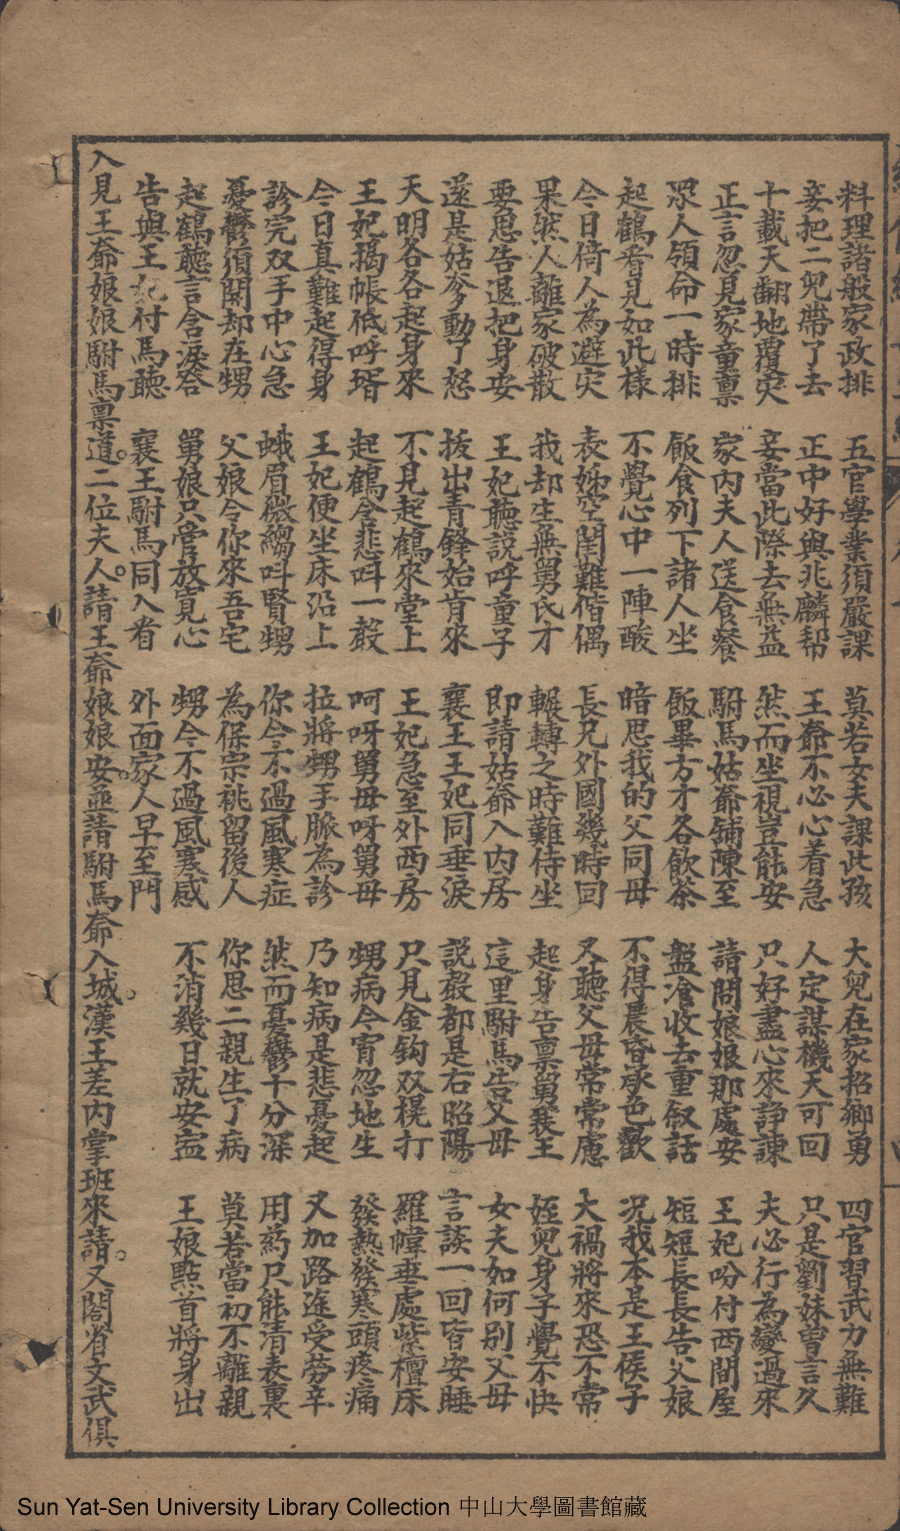 料理諸般家政排　五官學業須嚴課　莫若女夫課此孩　大兒在家招鄉勇　四官習武力無難
妾把二兒帶了去　正中好與兆麟帮　王爺不必心着急　人定謀機天可回　只是劉妹曽言久
十載天翻地覆灾　妾當此際去無益　然而坐視豈能安　只好盡心來諍諫　夫必行為變過來
正言忽見家童禀　家内夫人送食餐　駙馬姑爺舖陳至　請問娘娘那處安　王妃吩付西間屋
眾人領命一時排　飯食列下諸人坐　飯畢方才各飲茶　盤飡收去重叙話　短短長長告父娘
起鶴看見如此樣　不覺心中一陣酸　暗思我的父同母　不得晨昏承色歡　况我本是王侯子
今日倚人為避灾　表姊空閨難偕偶　長兄外國幾時回　又聽父母常常慮　大禍將來恐不常
果然人離家破散　我却生無舅氏才　輾轉之時難侍坐　起身告禀舅襄王　姪兒身子覺不快
要思告退把身安　王妃聽說呼童子　即請姑爺入内房　這里駙馬告父母　女夫如何別父母
遂是姑爹動了怒　拔出青鋒始肯來　襄王王妃同垂淚　説聲都是右昭陽　言談一回皆安睡
天明各各起身來　不見起鶴來堂上　王妃急至外西房　只見金鈎双榥打　羅幃垂處紫檀床
王妃揭帳低呼壻　起鶴含悲叫一聲　呵呀舅母呀舅母　甥病今宵忽地生　發熱發寒頭疼痛
今日真難起得身　王妃便坐床沿上　拉將甥手脈為診　乃知病是悲憂起　又加路途受勞辛
診完双手中心急　蛾眉微縐叫賢甥　你今不過風寒症　然而憂鬱十分深　用葯只能清表裏
憂鬱須開却在甥　父娘令你來吾宅　為保宗祧留後人　你思二親生了病　莫若當初不離親
起鶴聽言含淚答　舅娘只管放寬心　甥今不過風寒感　不消幾日就安寍　王娘㸃首將身出
告與王妃付馬聽　襄王駙馬同入看　外面家人早至門
入見王爺娘娘駙馬禀道。二位夫人。請王爺娘娘安。並請駙馬爺入城。漢王差内掌班來請。又閣省文武俱
Sun Yat-Sen University Library Collection 中山大學圖書館藏